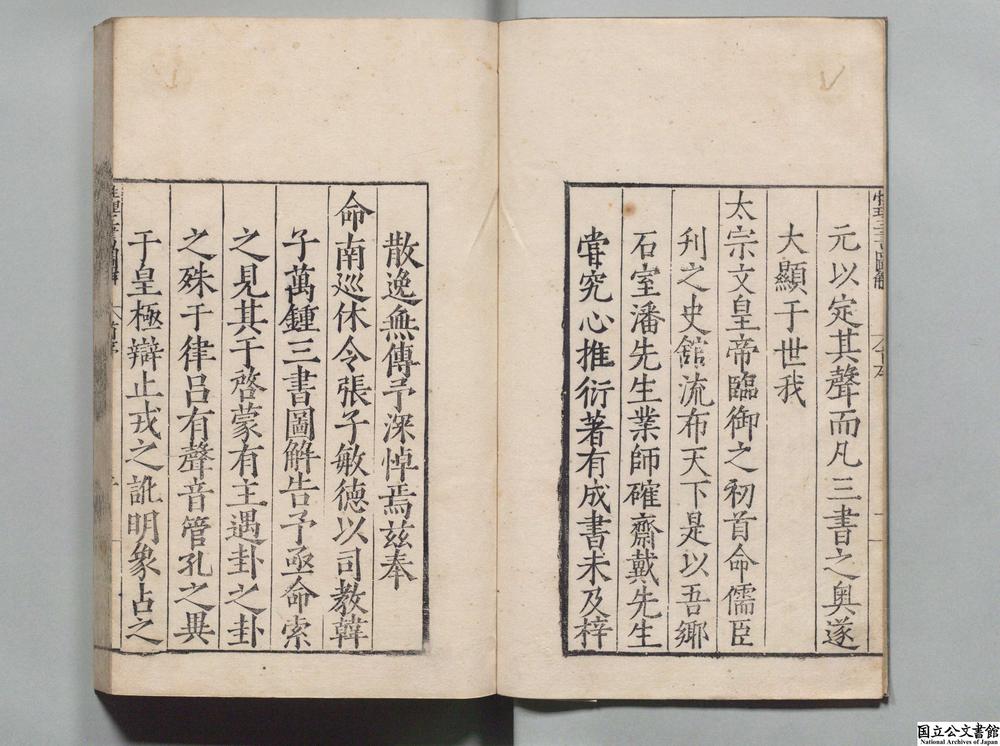 元以定其聲而凡三書之奥遂
大顯于世我
太宗文皇帝臨御之初首命儒臣
刋之史舘流布天下是以吾鄉
石室潘先生業師確齋戴先生
甞究心推衍著有成書未及梓
散逸無傳予深悼焉兹奉
命南巡休令張子敏德以司教韓
子萬鍾三書圖解告予亟命索
之見其于啓蒙有主遇卦之卦
之殊于律吕有聲音管孔之異
于皇極辯止戎之訛明象占之
国立公文書館
National Archives of Japan